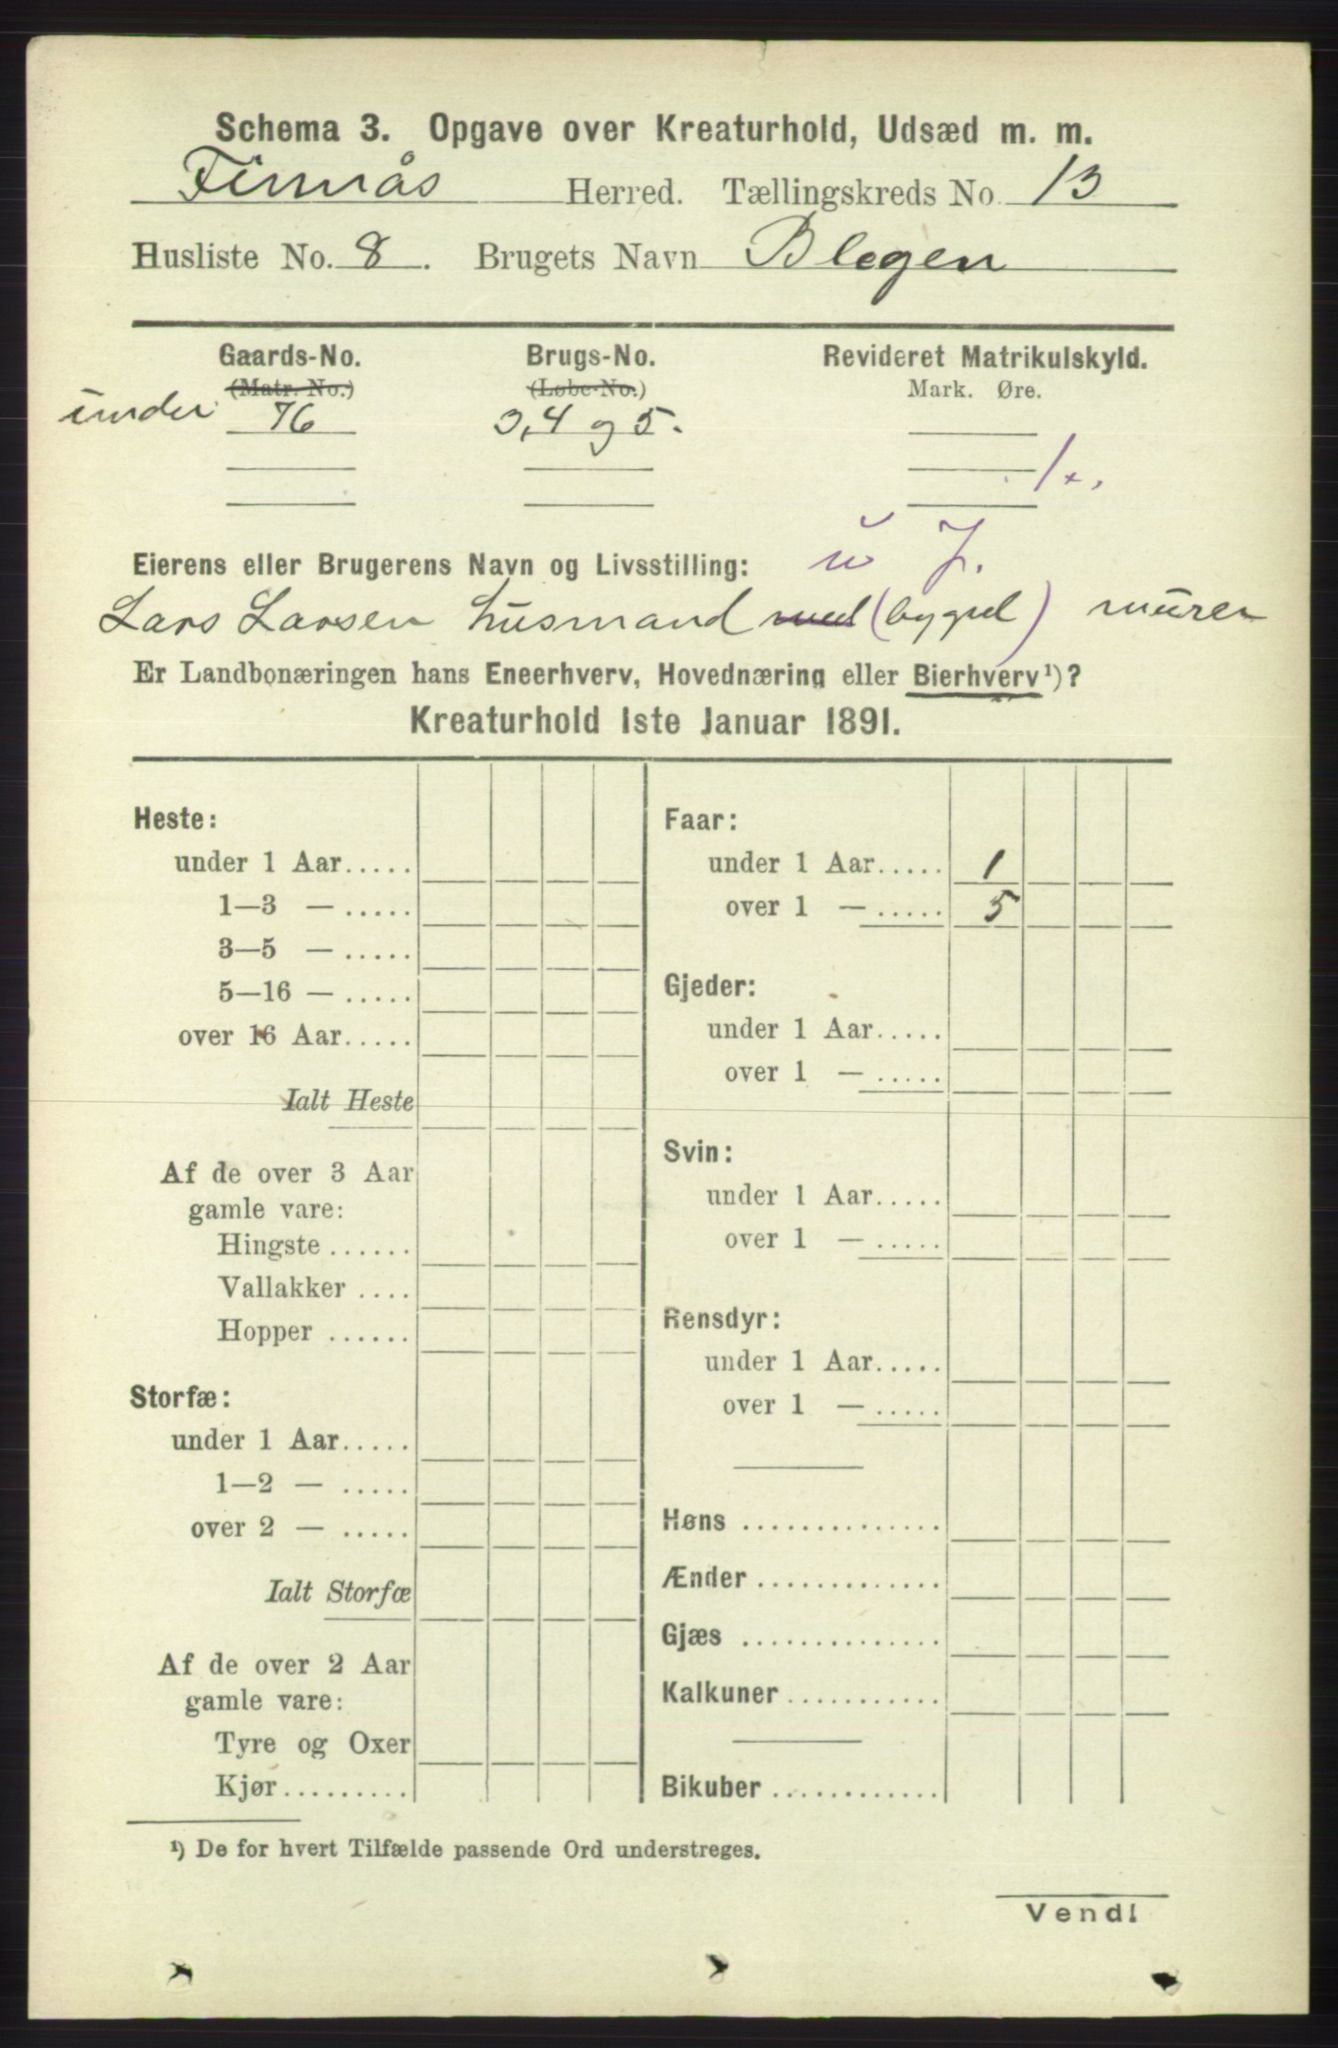 Schema 3. Opgave over Kreaturhold, Udsæd m. m.
Finnås Herred. Tællingskreds No. 13
Husliste No. 8. Brugets Navn Blegen
Gaards-No. Brugs-No. Revideret Matrikulskyld.
(Matr. No.) (Løbe-No.) Mark. Øre.
under 76 3,4 og 5.
u J.
Eierens eller Brugerens Navn og Livsstilling:
Lars Larsen Husmand med (bygsel) murer
Er Landbonæringen hans Eneerhverv, Hovednæring eller Bierhverv¹)?
Kreaturhold 1ste Januar 1891.
Heste:
under 1 Aar.....
1—3 — .....
3—5 — .....
5—16 — .....
over 16 Aar.....
Ialt Heste
Af de over 3 Aar
gamle vare:
Hingste ......
Vallakker ....
Hopper ......
Storfæ:
under 1 Aar.....
1—2 — .....
over 2 — .....
Ialt Storfæ
Af de over 2 Aar
gamle vare:
Tyre og Oxer
Kjør.........
Faar:
under 1 Aar..... 1
over 1 — ..... 5
Gjeder:
under 1 Aar.....
over 1 — .....
Svin:
under 1 Aar.....
over 1 — .....
Rensdyr:
under 1 Aar.....
over 1 — .....
Høns ..............
Ænder .............
Gjæs ..............
Kalkuner...........
Bikuber ............
¹) De for hvert Tilfælde passende Ord understreges.
Vend!